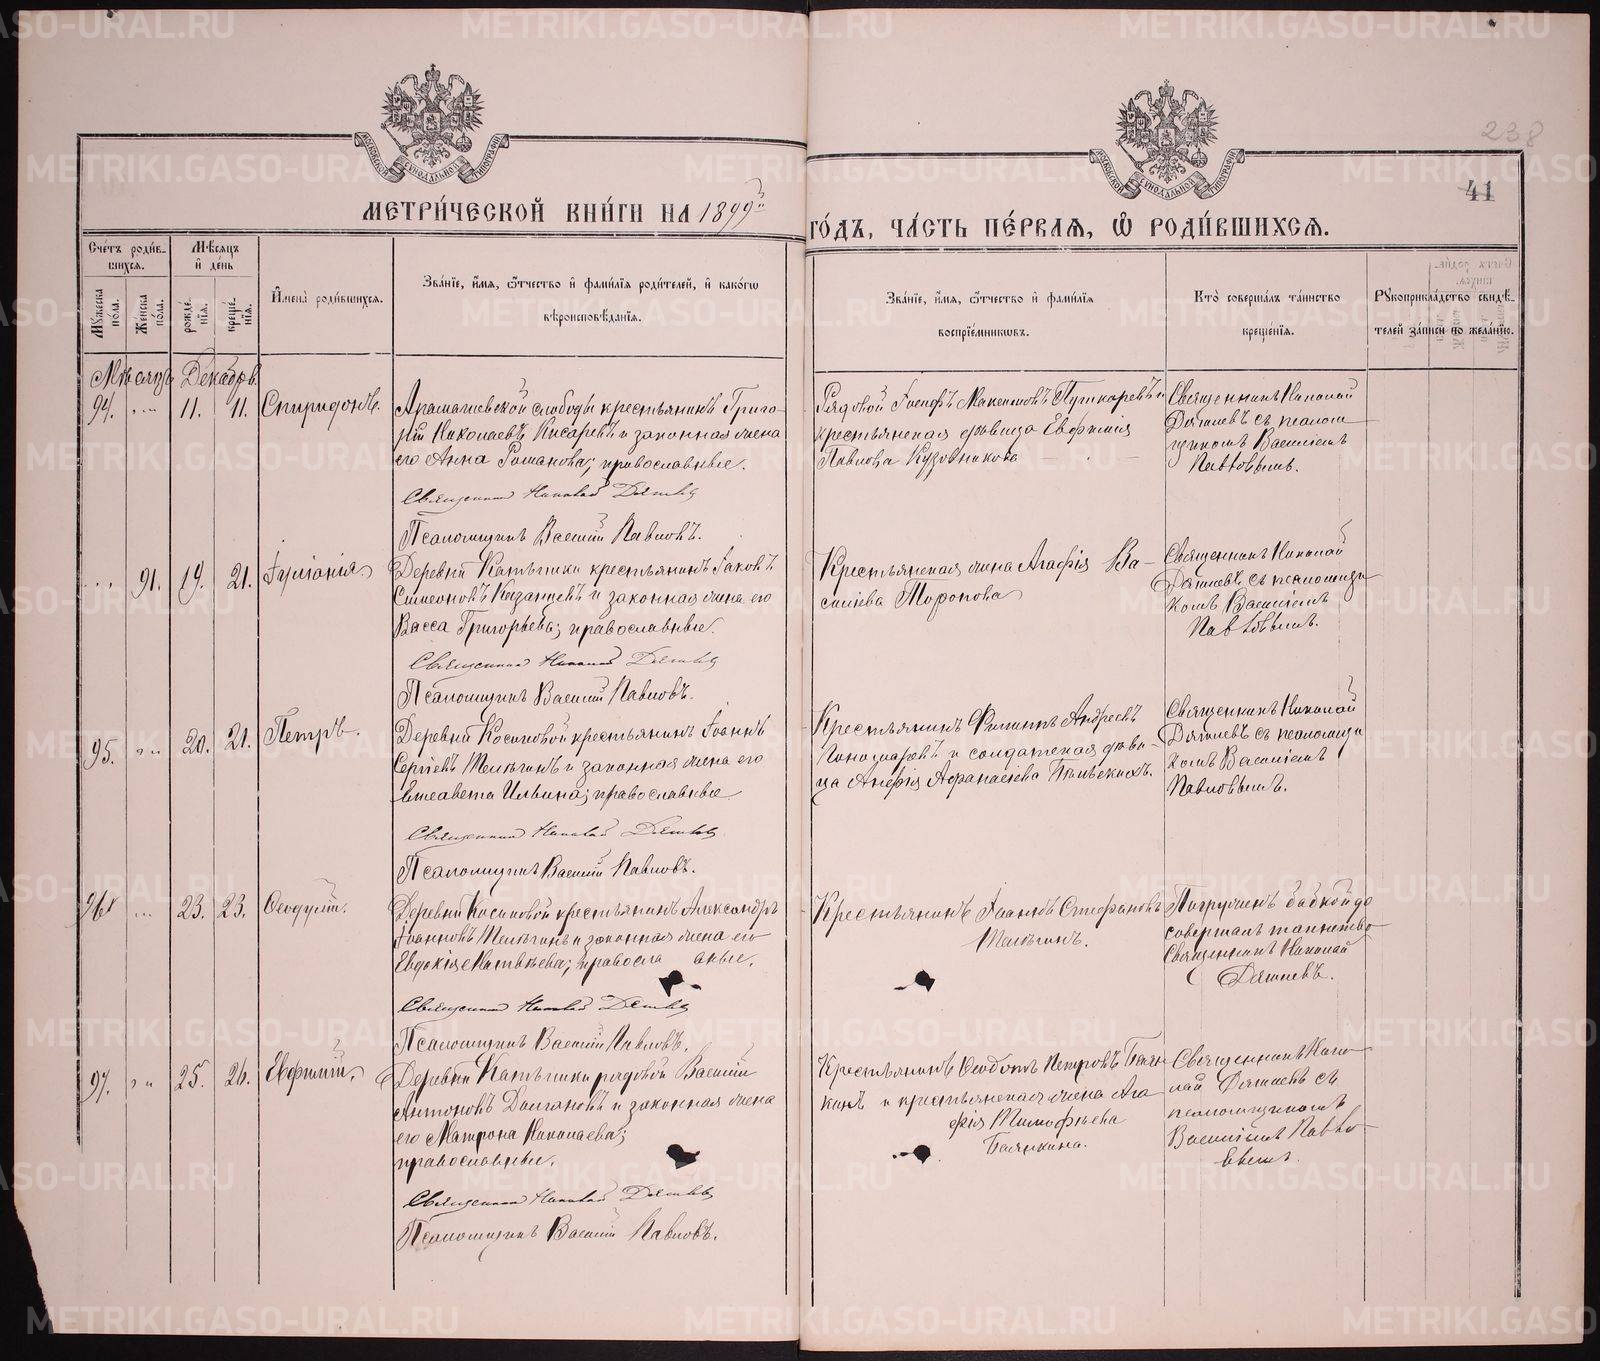 238
41
МЕТРИЧЕСКОЙ КНИГИ НА 1899й
ГОДЪ, ЧАСТЬ ПЕРВАЯ, Ѡ РОДИВШИХСЯ.
Счетъ родив-
шихся.
Мѣсяцъ
и день
Мужеска пола.
Женска пола.
рожде-
нія.
креще-
нія.
Имена родившихся.
Званіе, имя, ѿчество и фамилія родителей, и какогѡ
вѣроисповѣданія.
Званіе, имя, ѿчество и фамилія
воспріемниковъ.
Кто совершалъ таинство
крещенія.
Рукоприкладство свидѣ-
телей записи по желанію.
Мѣсяцъ Декабрь
94. " " 11. 11. Спиридонъ.
Арамашевской слободы крестьянинъ Григо-
рій Николаевъ Писаревъ и законная жена
его Анна Романова; православные.
Священникъ Николай Дягилевъ
Псаломщикъ Василій Павловъ.
Рядовой Іосифъ Максимовъ Пушкаревъ и
крестьянская дѣвица Евфимія
Павлова Кузовникова
Священникъ Николай
Дягилевъ съ псалом-
щикомъ Василіемъ
Павловымъ.
" " 91. 19. 21. Іуліанія.
Деревни Катышки крестьянинъ Іаковъ
Симеоновъ Казанцевъ и законная жена его
Васса Григорьева; православные.
Священникъ Николай Дягилевъ
Псаломщикъ Василій Павловъ.
Крестьянская жена Агафія Ва-
силіева Торопова
Священникъ Николай
Дягилевъ съ псаломщи-
комъ Василіемъ
Павловымъ.
95. " " 20. 21. Петръ.
Деревни Косиковой крестьянинъ Іоаннъ
Сергіевъ Телѣгинъ и законная жена его
Елисавета Ильина; православные
Священникъ Николай Дягилевъ
Псаломщикъ Василій Павловъ.
Крестьянинъ Филиппъ Андреевъ
и солдатская дѣви-
ца Анфія Афанасіева
Священникъ Николай
Дягилевъ съ псаломщи
комъ Василіемъ
Павловымъ.
96. " " 23. 23. Ѳеодулій.
Деревни Косиковой крестьянинъ Александръ
Іоанновъ Телѣгинъ и законная жена его
Евдокія Матвѣева; православные.
Священникъ Николай Дягилевъ
Псаломщикъ Василій Павловъ.
Крестьянинъ Іоаннъ Стефановъ
Телѣгинъ.
Погруженъ бабкой до
совершалъ таинство
Священникъ Николай
Дягилевъ.
97. " " 25. 26. Евфимій.
Деревни Катышки рядовой Василій
Антоновъ Долгановъ и законная жена
его Матрона Николаева;
православные.
Священникъ Николай Дягилевъ
Псаломщикъ Василій Павловъ.
Крестьянинъ Ѳеодотъ Петровъ Баян-
кинъ и крестьянская жена Ага
фія Тимофѣева
Баянкина.
Священникъ Нико-
лай Дягилевъ съ
псаломщикомъ
Василіемъ Павло-
вымъ.
METRIKI.GASO-URAL.RU